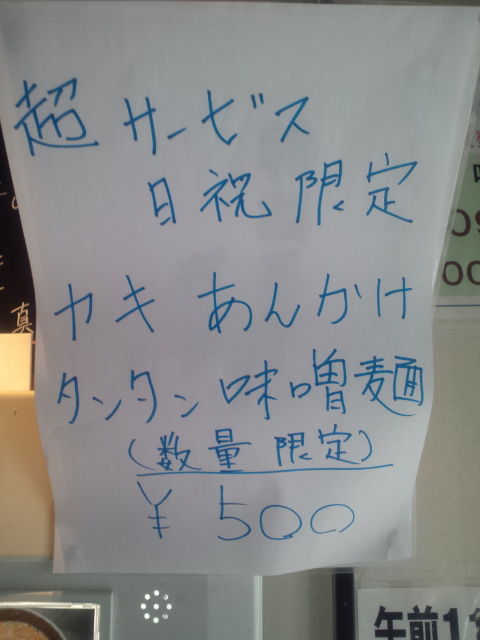 超サービス
日祝限定
カキあんかけ
タンタン味噌麺
(数量限定)
¥500
午前11